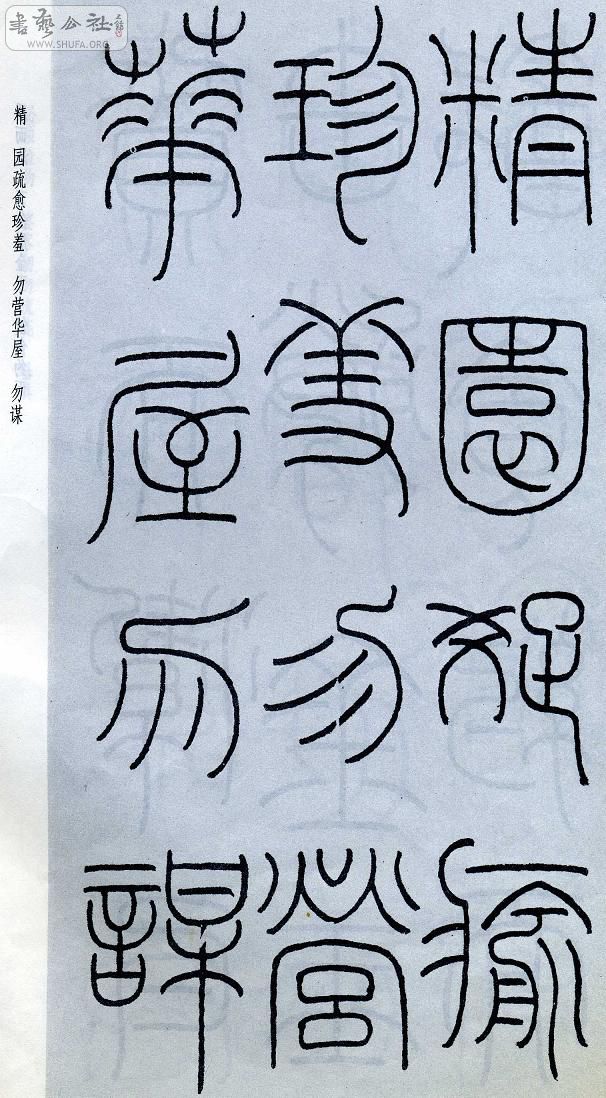 書藝公社
www.SHUFA.ORG
精園疏瘉
珍羞勿營
華屋勿謀
精 园疏愈珍羞 勿营华屋 勿谋